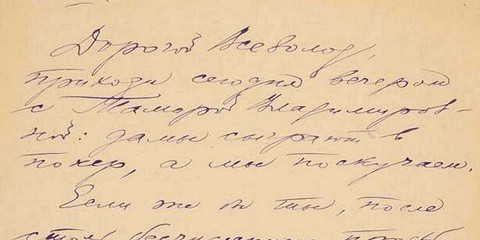 Дорогой Всеволод,
приходи сегодня вечером
с Тамарой Владимиров-
ной: дамы сыграют в
покер, а мы поскучаем.
Если же бы ты, после